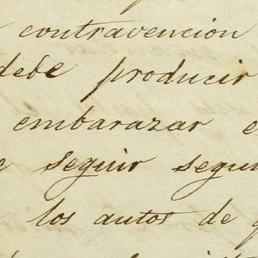 contravención
debe producir
embarazar e
seguir segui
los autos de